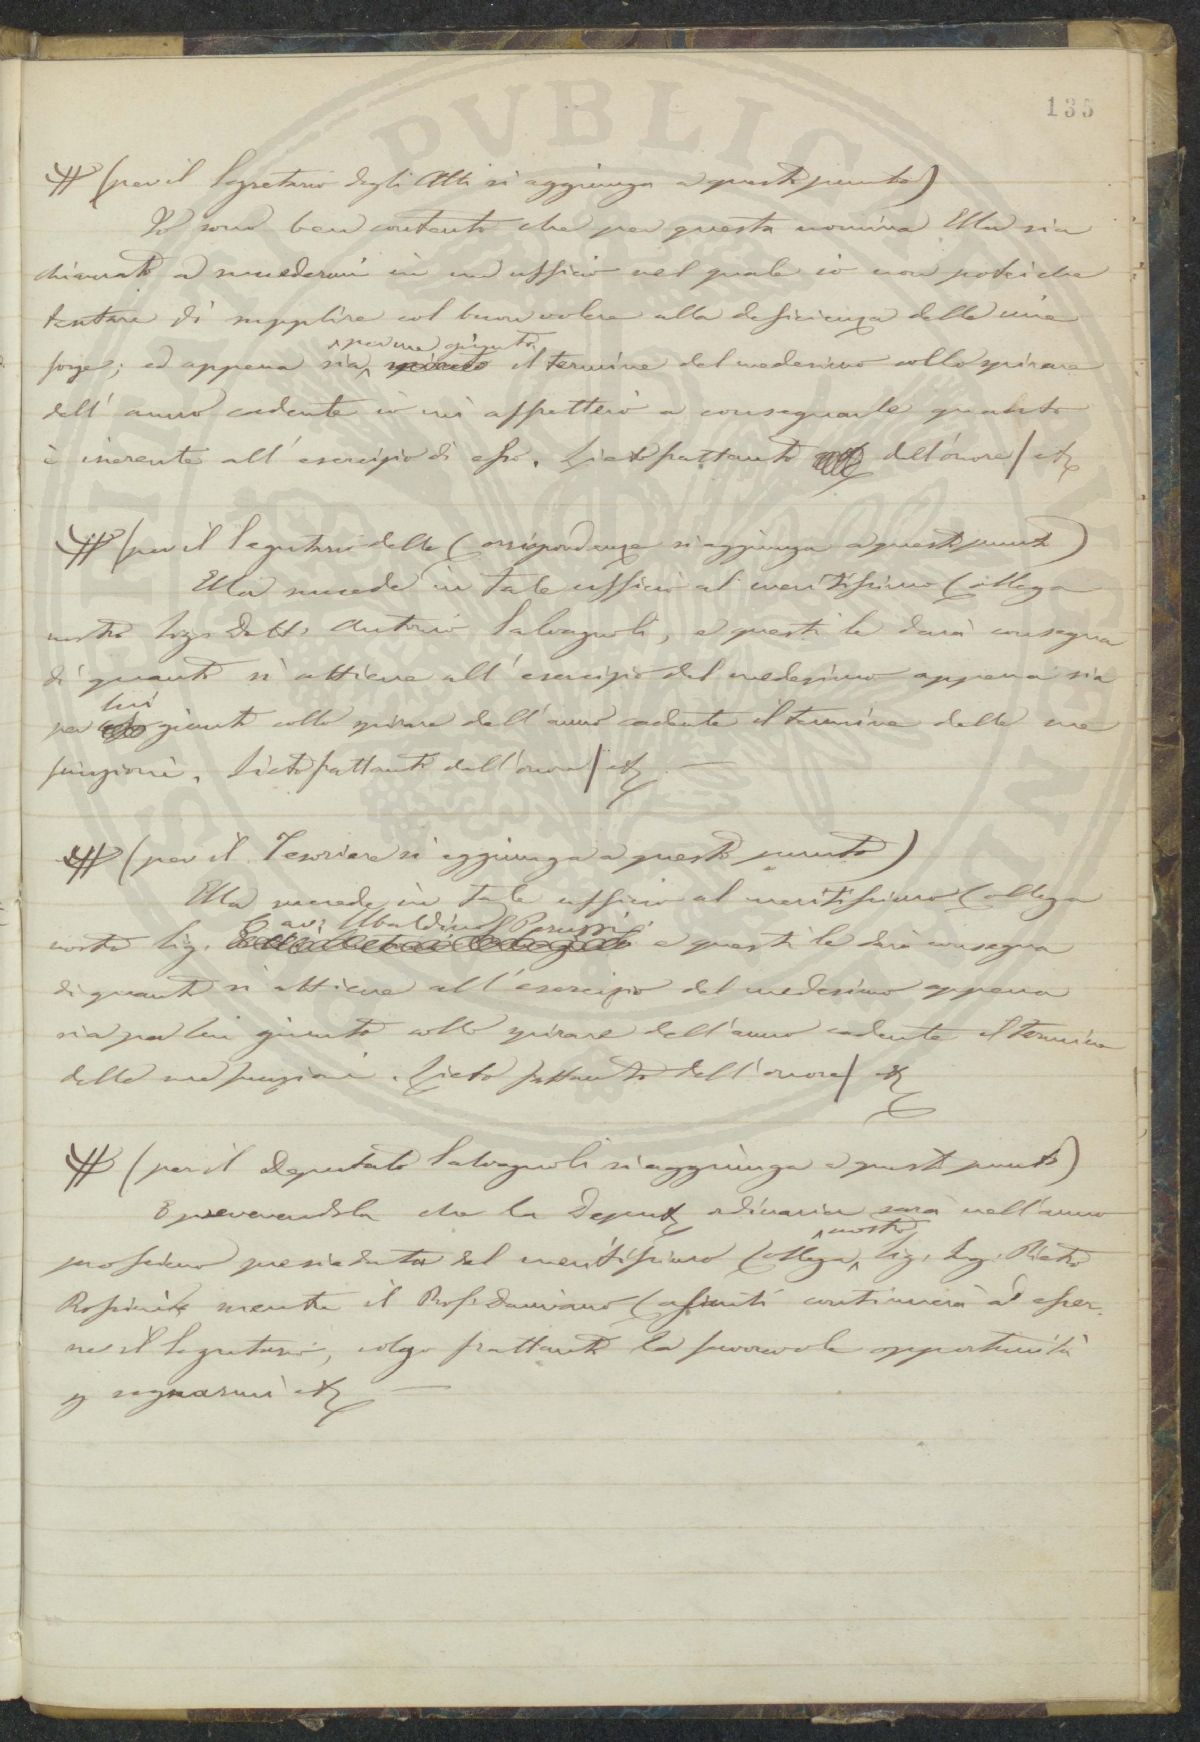 135
# (per il Segretario degli Atti si aggiunga a questo punto)
Io sono ben contento che per questa nomina Ella sia
chiamato a succedermi in un ufficio nel quale io non potei che
tentare di supplire col buon volere alla deficienza delle mie
forze; ed appena sia per me giunto il termine del medesimo collo spirare
dell'anno cadente io mi affretterò a consegnarle quanto
è inerente all'esercizio di esso. Lieto frattanto dell'onore/
# (per il Segretario delle Corrispondenze si aggiunga a questo punto)
Ella succede in tale ufficio al meritissimo Collega
nostro Sigr Dott. Antonio Salvagnoli, e questi le darà consegna
di quanto si attiene all'esercizio del medesimo appena sia
per lui giunto collo spirare dell'anno cadente il termine delle sue
funzioni. Lieto frattanto dell'onore/
# (per il Tesoriere si aggiunga a questo punto)
Ella succede in tale ufficio al meritissimo Collega
nostro Sig. Cav. Ubaldino Peruzzi e questi le darà consegna
di quanto si attiene all'esercizio del medesimo appena
sia per lui giunto collo spirare dell'anno cadente il termine
delle sue funzioni. Lieto frattanto dell'onore/
# (per il Deputato Salvagnoli si aggiunga a questo punto)
E prevenendola che la Deput ordinaria sarà nell'anno
prossimo presieduta dal meritissimo Collega nostro Sig. Ing. Pietro
mentre il Prof. Damiano Casanti continuerà ad esser
ne il Segretario, colgo frattanto la favorevole opportunità
segnarmi
PVBLICA